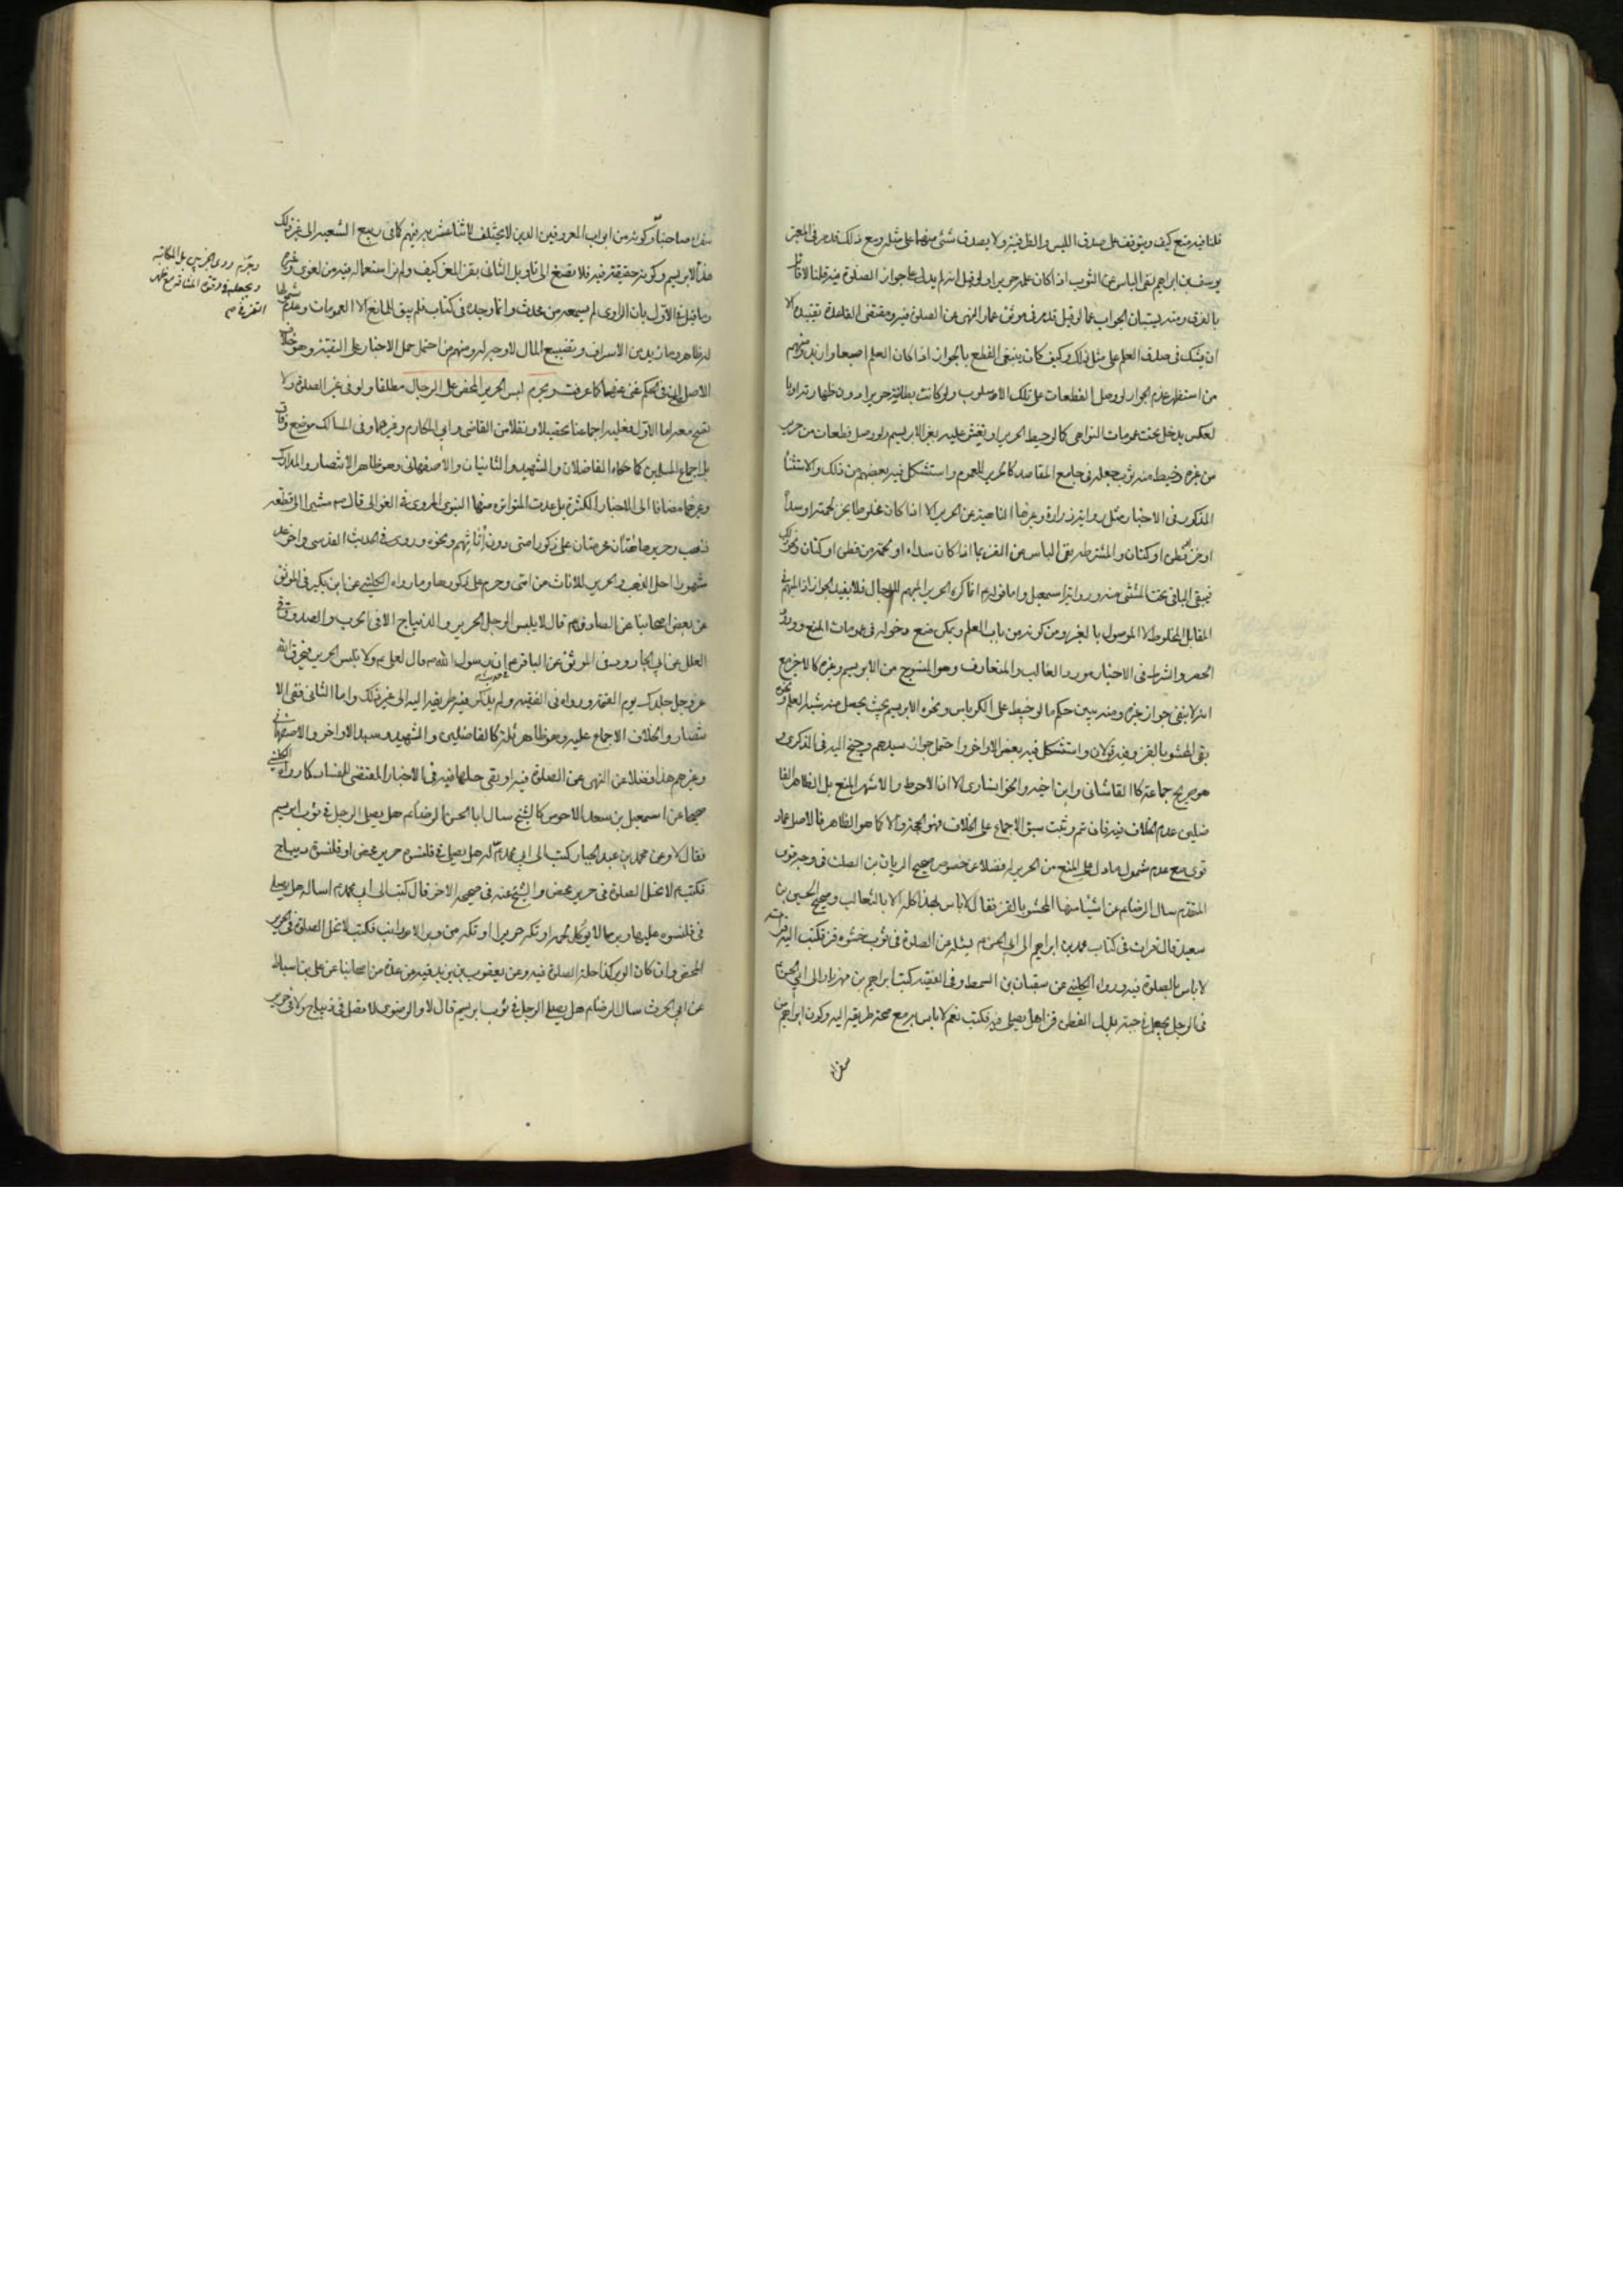 قلنا فيه منع كيف ويتوقف على صدق اللبس والظرفية ولا يصدق شئ منهما على مثله ومع ذلك قد مر في المعبر
يوسف بن ابراهيم نفى الباس عن الثوب اذا كان علمه حريرا ولو قيل انه لم يدل على جواز الصلوة فيه قلنا لا قائل
بالفرق ومنه يستبان الجواب عما لو قيل قد مر في موثق عمار النهى عن الصلوة فيه ومقتضى القاعدة تقييده الا
ان يشك في صدق العلم على مثل ذلك وكيف كان ينبغي القطع بالجواز اذا كان العلم اصبعا وان
من استظهر عدم الجواز لو وصل القطعات على تلك الاسلوب ولو كانت بطانته حريرا دون ظهارته او با
لعكس يدخل تحت عمومات النواهى كالو خيط الحرير او تغشى عليه بغير الابريسم ولو وصل قطعات من حرير
من غيره وخيط منه ثوب جعله في جامع المقاصد كالحرير للعموم واستشكل فيه بعضهم من ذلك والاستثنا
المذكور في الاخبار مثل رواية زرارة وغيرها الناهية عن الحرير الا اذا كان مخلوطا بخز لحمته او سداه
او خز او قطن او كتان والمشترطة نفى الباس عن القز بما اذا كان سداه او لحمته من قطن او كتان ونحو ذلك
فيبقى الباقى تحت المستثنى منه ورواية اسمعيل واما قوله انما كره الحرير المبهم للرجال فلا يفيد الجواز اذ المبهم في
المقابل المخلوط لا الموصول بالغير ومن كونه من باب العلم ويمكن منع دخوله في عمومات المنع وورود
الحصر والشرط في الاخبار مورد الغالب والمتعارف وهو المنسوج من الابريسم وغيره كالاخر مع
انه لا ينفى جواز غيره ومنه يبين حكم ما لو خيط على الكرباس ونحوه الابريسم بحيث يحصل منه شبه العلم ونحوه
بقى المحشو بالقز وفيه قولان واستشكل فيه بعض الاواخر واحتمل جوازه سيدهم وجنح اليه في الذكرى و
هو صريح جماعة كالقاشانى وابن اخيه والخوانسارى الا ان الاحوط والاشهر المنع بل الظاهر الفا
ضلين عدم الخلاف فيه فان تم وثبت سبق الاجماع على الخلاف فهو الحجة والا كما هو الظاهر فالاصل عماد
قوى مع عدم شمول ما دل على المنع من الحرير له فضلا عن خصوص صحيح الريان بن الصلت في وجه قوى
المتقدم سال الرضا ع عن اشياء منها المحشو بالقز فقال لا باس بهذا كله الا بالثعالب وصحيح الحسين بن
سعيد قال قرات في كتاب محمد بن ابراهيم الى ابى الحسن ع يسئله عن الصلوة في ثوب حشوه قز فكتب اليه قراته
لا باس بالصلوة فيه ورواه الكلينى عن سفيان بن السمط وفى الفقيه كتب ابراهيم بن مهزيار الى ابى الحسن ع
في الرجل يجعل في جبته بدل القطن قزا هل يصلى فيه فكتب نعم لا باس به مع صحة طريقه اليه وكون ابراهيم من
سفراء
سفراء صاحبنا وكونه من ابواب المعروفين الذين لا يختلف الاثنا عشرية فيهم كما في ربيع الشيعة الى غير ذلك
هذا الابريسم وكونه حقيقة فيه فلا يصغى الى تاويل الثانى بقز المعز كيف ولم نر استعماله فيه من لغوى وغيره
وما قيل في الاول بان الراوى لم يسمعه من محدث وانما وجده في كتاب فلم يبق للمانع الا العمومات وعدم شمولها
له ظاهر وما يدعى الاسراف وتضييع المال لا وجه له ومنهم من احتمل حمل الاخبار على التقية وهو خلاف
الاصل الخ في الحكم غنى عنها كما عرفت ويحرم لبس الحرير المحض على الرجال مطلقا ولو في غير الصلوة ولا
تصح معه اما الاول فعليه اجماعنا تحصيلا ونقلا من القاضى وابى المكارم وغيرهما وفى المسالك موضع وفاق
بل اجماع المسلمين كما حكاه الفاضلان والشهيد والثانيان والاصفهانى وهو ظاهر الانتصار والمدارك
وغيرها مضافا الى الاخبار الكثيرة بل عدت المتواترة منها النبوى المروى في الغوالى قال ص مشيرا الى قطعة
ذهب وحرير هاتان محرمتان على ذكور امتى دون اناثهم ونحوه وروى في الحديث القدسى واخر عد
مشهورا احل الذهب والحرير للاناث من امتى وحرم على ذكورها وما رواه الكلينى عن ابن بكير في الموثق
عن بعض اصحابنا عن الصادق ع قال لا يلبس الرجل الحرير والديباج الا في الحرب والصدوق في
العلل عن ابى الجارود في الموثق عن الباقر ع ان رسول الله ص قال لعلى ع ولا تلبس الحرير فيحرق الله
عز وجل جلدك يوم القيمة ورواه في الفقيه ولم يذكر فيه طريقه اليه الى غير ذلك واما الثانى ففى الا
نتصار والخلاف الاجماع عليه وهو ظاهر ثلثة كالفاضلين والشهيد وسيد الاواخر والاصفهانى
وغيرهم هذا فضلا عن النهى عن الصلوة فيه او بقى حلها فيه في الاخبار المقتضى للفساد كما رواه الكلينى
صحيحا عن اسمعيل بن سعد الاحوص كالشيخ سال ابا الحسن الرضا ع هل يصلى الرجل في ثوب ابريسم
فقال لا وعن محمد بن عبد الجبار كتب الى ابى محمد ع اله هل يصلى في قلنسوة حرير محض او قلنسوة ديباج
فكتب ع لا تحل الصلوة في حرير محض والشيخ عنه في صحيحه الاخر قال كتبت الى ابى محمد ع اساله هل يصلى
في قلنسوة عليها وبر ما لا يؤكل لحمه او تكة حرير او تكة من وبر الارانب فكتب لا تحل الصلوة في الحرير
المحض وان كان الوبر ذكيا حلت الصلوة فيه وعن يعقوب بن يزيد عن عدة من اصحابنا عن على بن اسباط
عن ابى الحرث سال الرضا ع هل يصلى الرجل في ثوب ابريسم قال لا والرضوى لا تصل في ديباج ولا في حرير